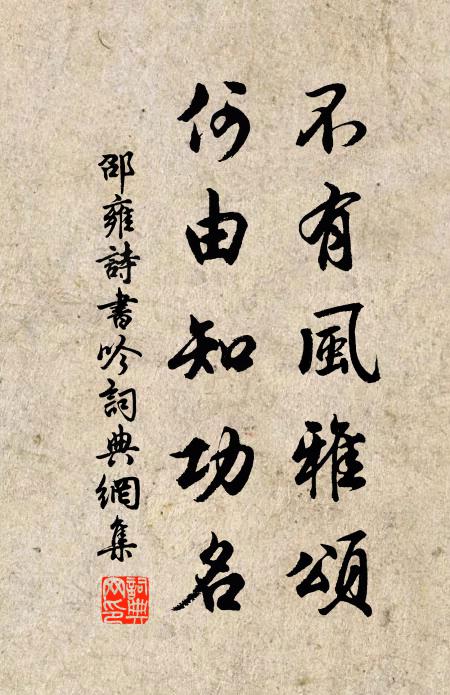 不有風雅頌
何由知功名
邵雍詩書吟詞典網集
詞典
网印